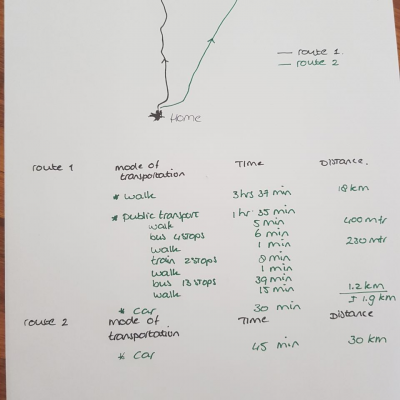 — route 1.
— route 2
Home
route 1 mode of transportation Time Distance.
* walk 3 hrs 37 min 18 km
* public transport 1 hr 35 min
walk 5 min 400 mtr
bus 4 stops 6 min
walk 1 min 230 mtr
train 2 stops 8 min
walk 1 min
bus 13 stops 39 min
walk 15 min 1.2 km
± 1.9 km
* car 30 min
route 2 mode of transportation Time Distance
* car 45 min 30 km